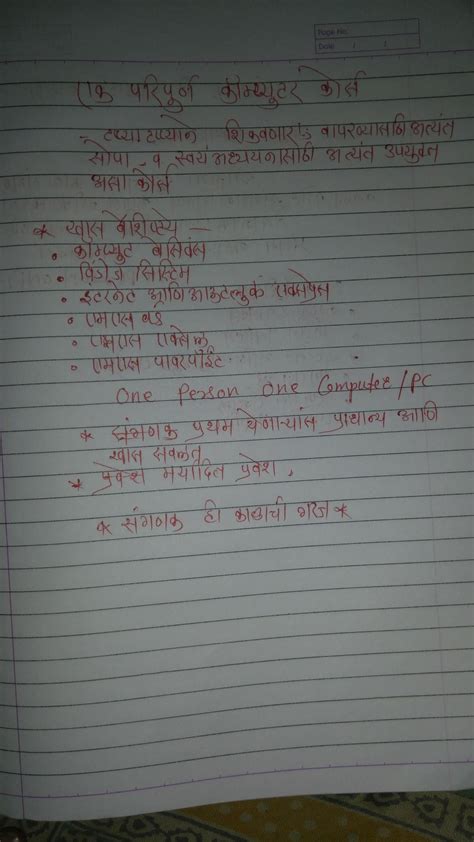 Page No.
Date : :
एक परिपुर्न कॉम्प्युटर कोर्स
- टप्या टप्याने शिकवणारं वापरण्यासाठी अत्यंत
सोपा व स्वयंअध्ययनासाठी अत्यंत उपयुक्त
असा कोर्स
* खास वैशिष्टये -
• कॉम्प्युट बेसिक्स
• विंडोज सिस्टिम
• इंटरनेट आणि आऊटलुक एक्सप्रेस
• एमएस वर्ड
• एमएस एक्सेल
• एमएस पावरपॉईंट
One Person One Computer / PC
* संगणक प्रथम येणाऱ्यांस प्राधान्य आणि
खास सवलत
* प्रवेश मर्यादित प्रवेश .
* संगणक ही काळाची गरज *